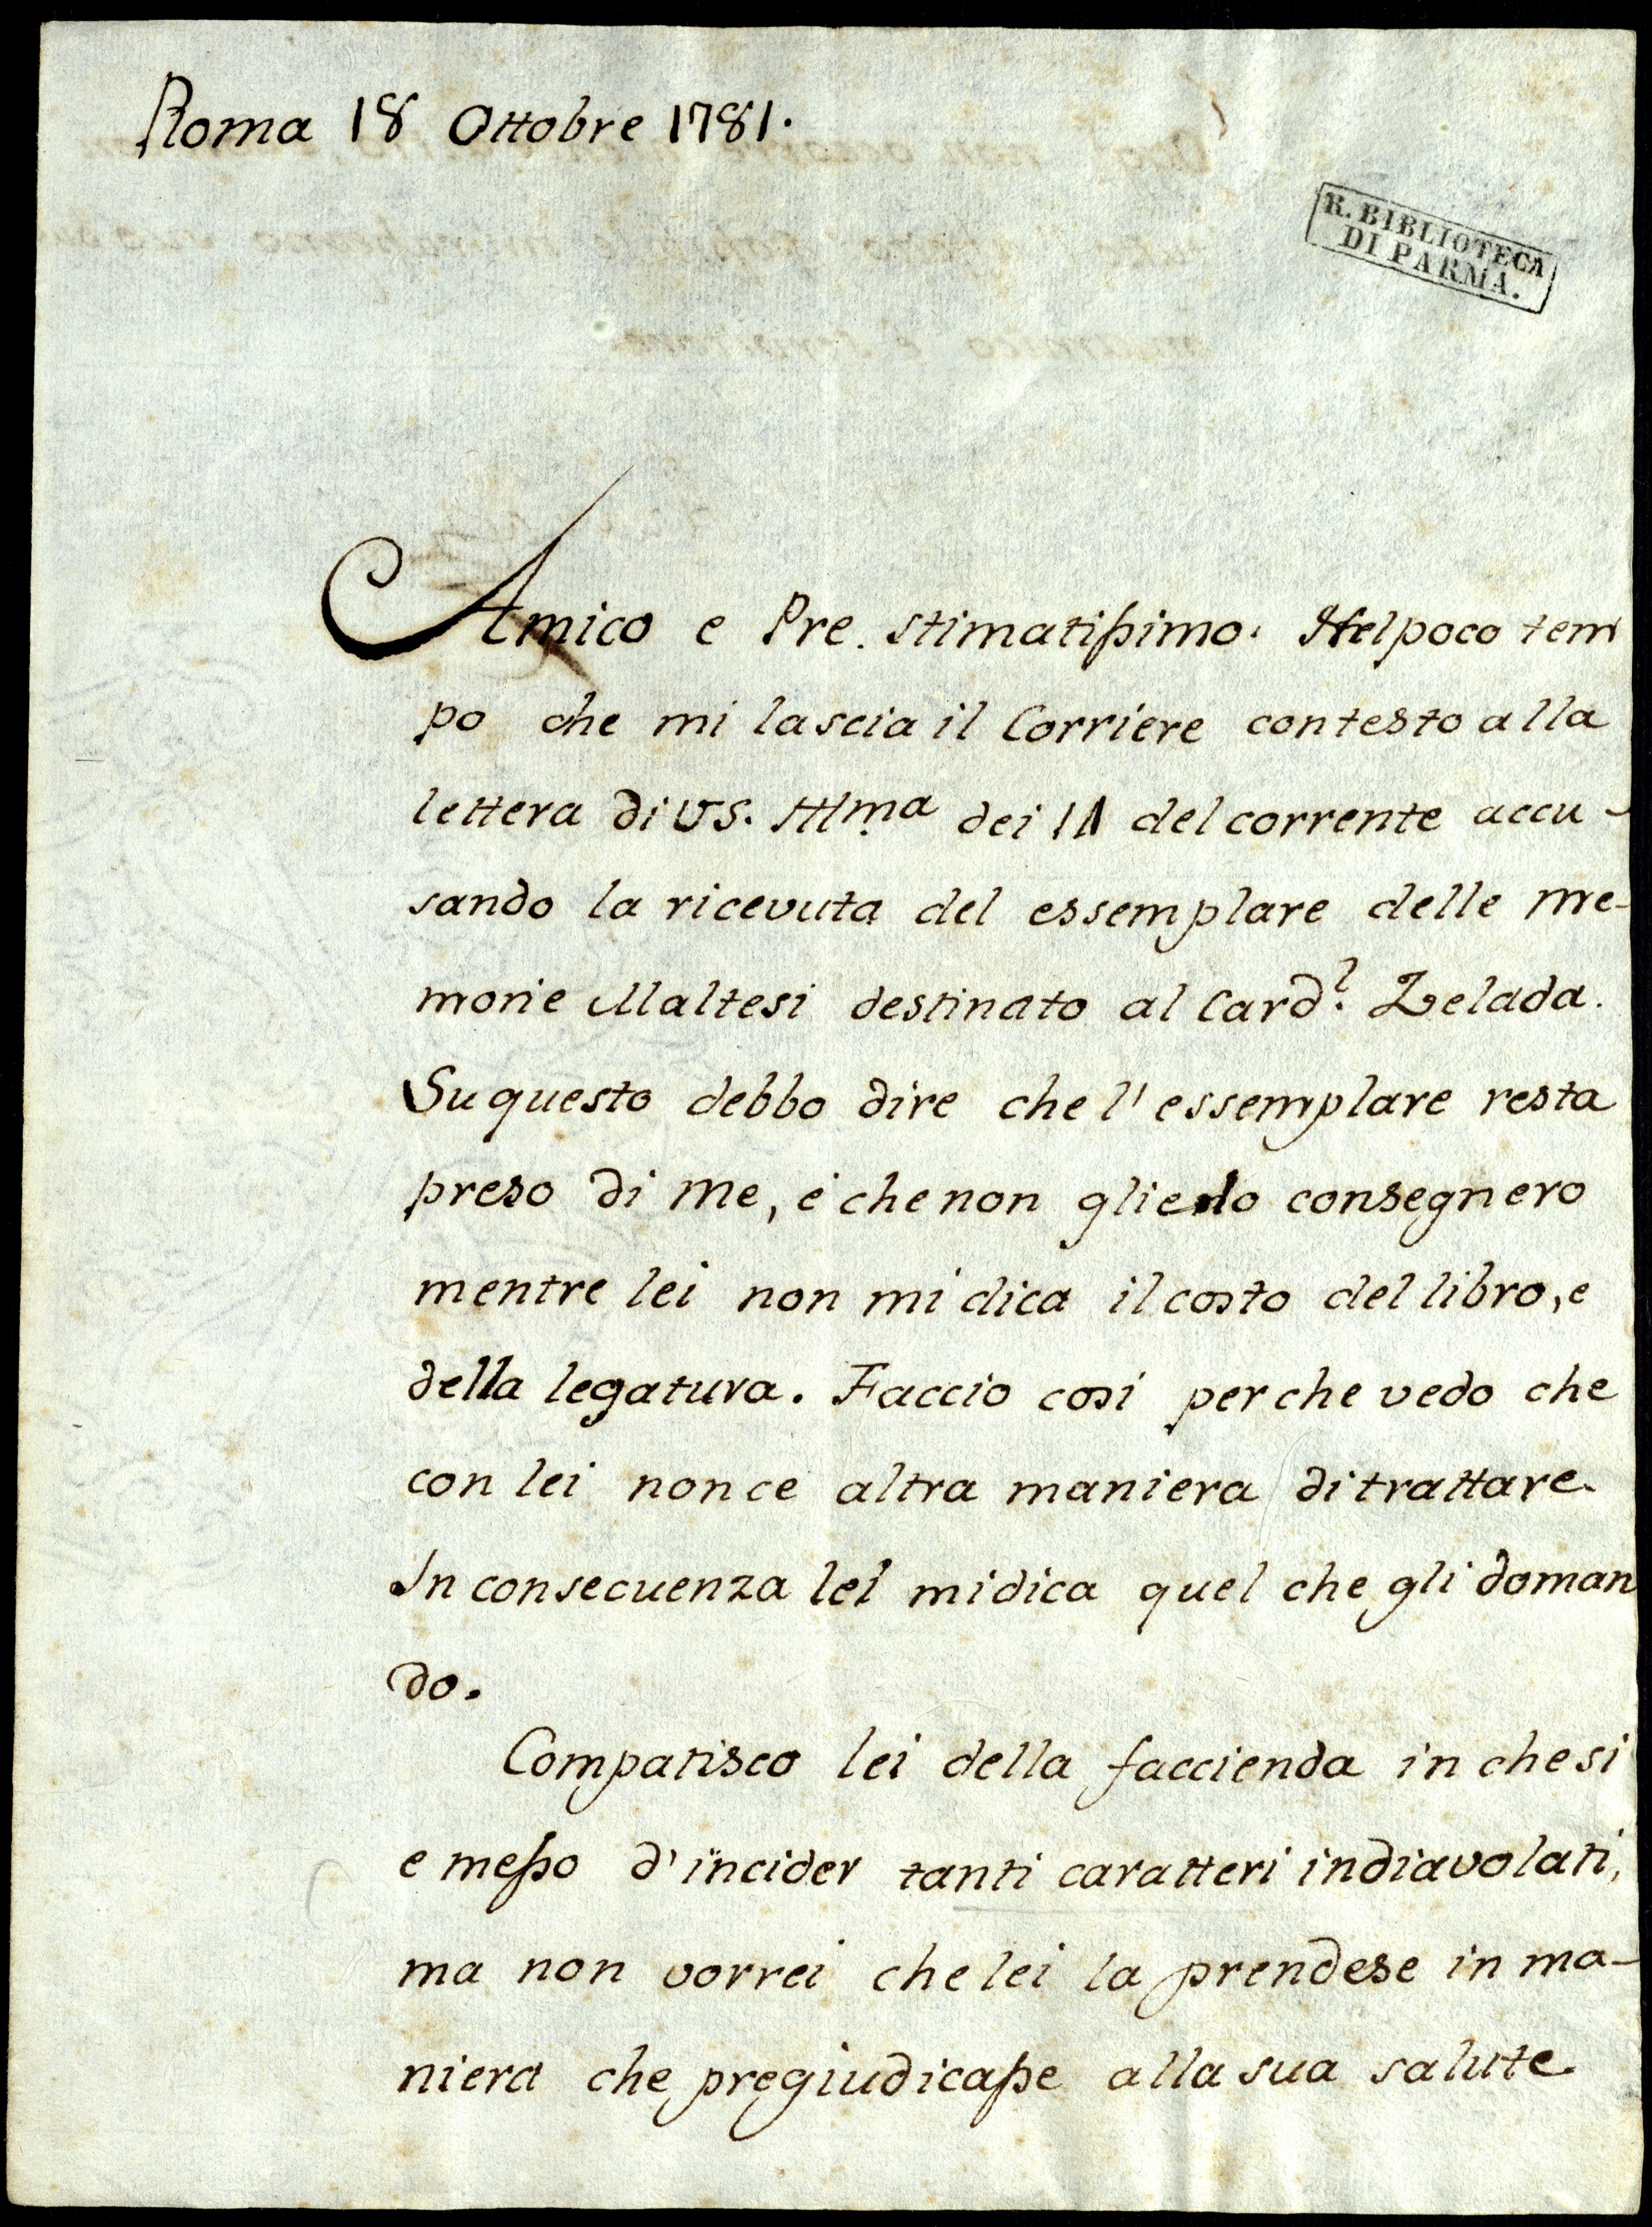 Roma 18 Ottobre 1781.
R. BIBLIOTECA
DI PARMA.
Amico e Pre. stimatißimo. Nel poco tem
po che mi lascia il Corriere contesto alla
lettera di VS. Illma dei 11 del corrente accu-
sando la ricevuta del essemplare delle me-
morie Maltesi destinato al Cardl. Zelada.
Su questo debbo dire che l'essemplare resta
preso di me, e che non glielo consegnero
mentre lei non mi dica il costo del libro, e
della legatura. Faccio cosi perche vedo che
con lei non ce altra maniera di trattare.
In consecuenza lei mi dica quel che gli doman
do.
Compatisco lei della faccienda in che si
e meßo d'incider tanti caratteri indiavolati,
ma non vorrei che lei la prendese in ma-
niera che pregiudicaße alla sua salute.